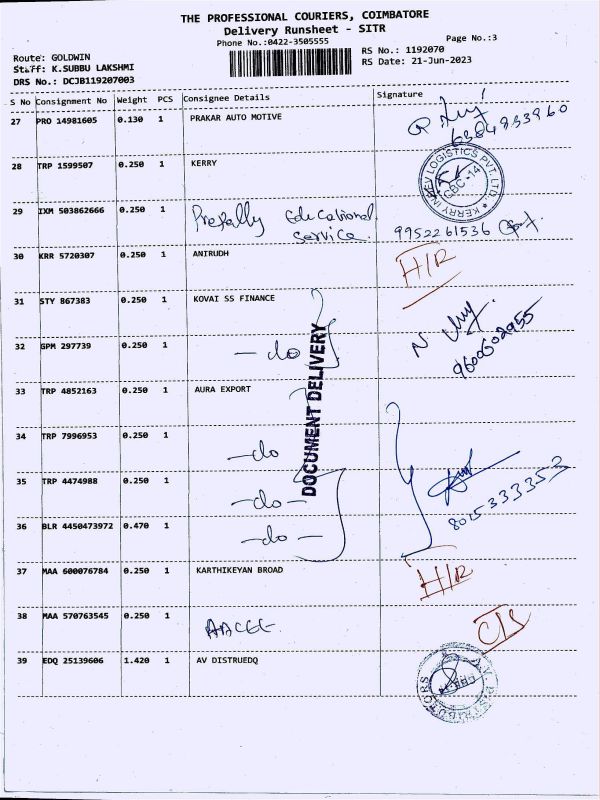 THE PROFESSIONAL COURIERS, COIMBATORE
Delivery Runsheet - SITR
Phone No.:0422-3505555
Page No.:3
Route: GOLDWIN
RS No.: 1192070
Staff: K.SUBBU LAKSHMI
RS Date: 21-Jun-2023
DRS No.: DCJB119207003
S No Consignment No Weight PCS Consignee Details Signature
27 PRO 14981605 0.130 1 PRAKAR AUTO MOTIVE
6384833960
28 TRP 1599507 0.250 1 KERRY
KERRY INDEV LOGISTICS PVT. LTD.
CBC-14
29 IXM 503862666 0.250 1 Educational
Service. 9952261536
30 KRR 5720307 0.250 1 ANIRUDH H/R
31 STY 867383 0.250 1 KOVAI SS FINANCE
9600502955
32 GPM 297739 0.250 1 -do-
DOCUMENT DELIVERY
33 TRP 4852163 0.250 1 AURA EXPORT
34 TRP 7996953 0.250 1 -do
35 TRP 4474988 0.250 1 -do-
8015333353
36 BLR 4450473972 0.470 1 -do-
37 MAA 600076784 0.250 1 KARTHIKEYAN BROAD H/R
38 MAA 570763545 0.250 1 AACEE
39 EDQ 25139606 1.420 1 AV DISTRUEDQ
A.V. DISTRIBUTORS